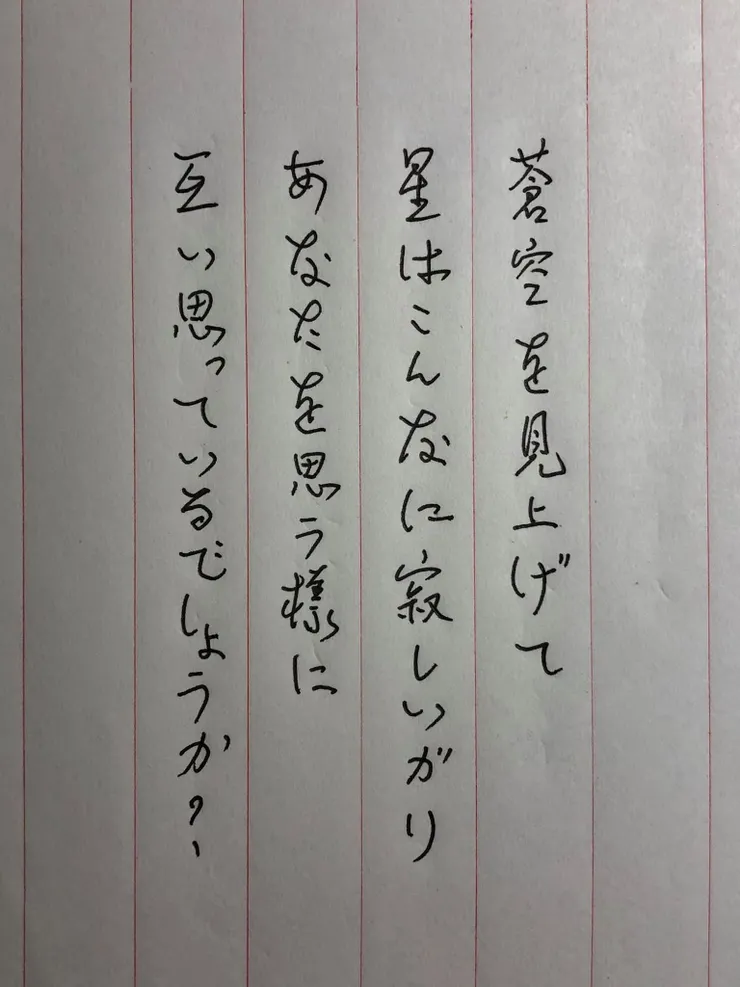 蒼空を見上げて
星はこんなに寂しいがり
あなたを思う様に
互い思っているでしょうか？